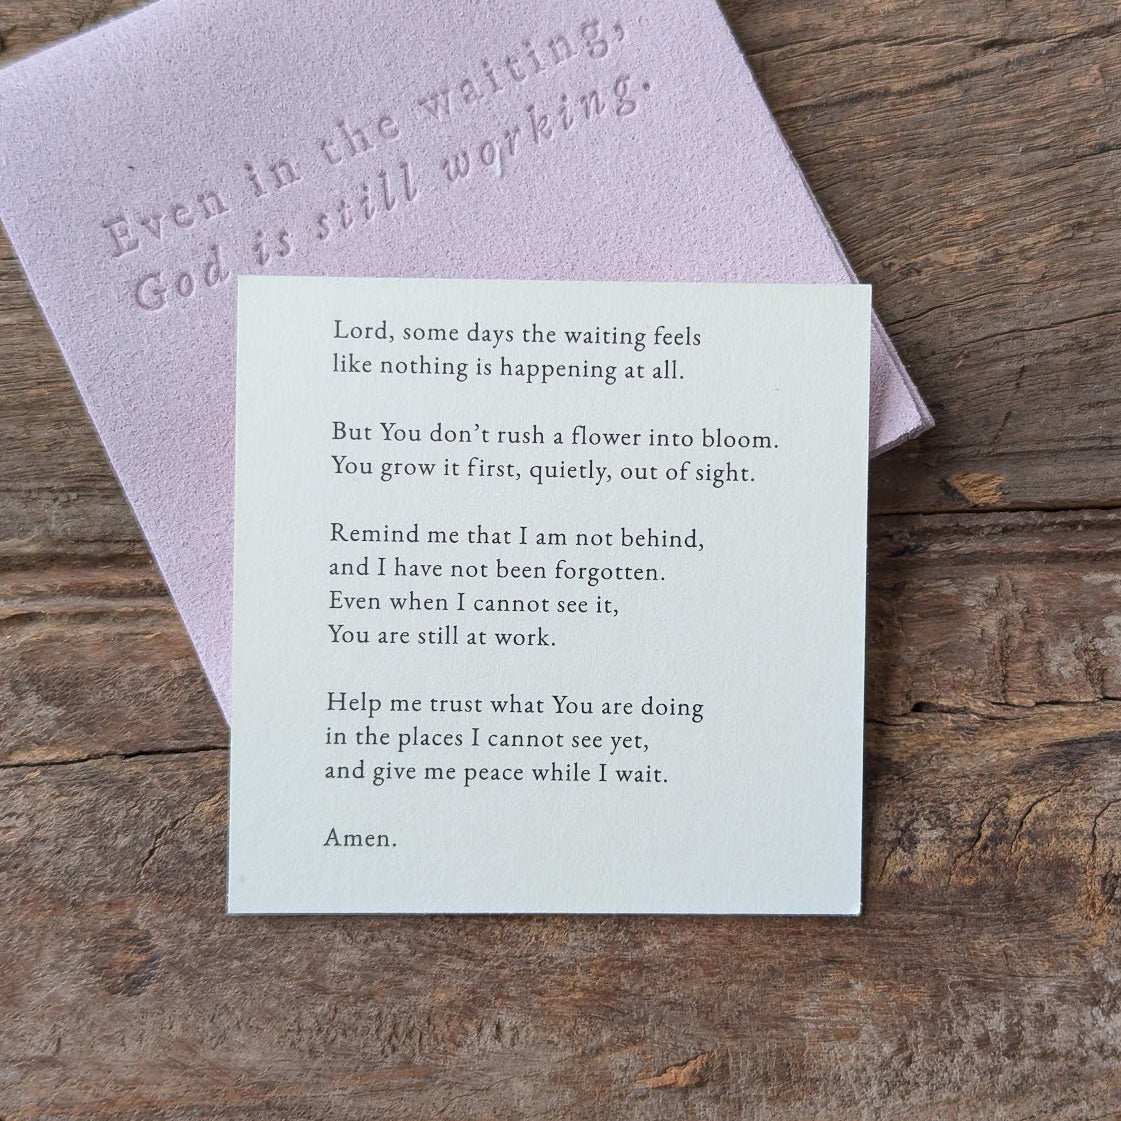 Even in the waiting,
God is still working.
Lord, some days the waiting feels
like nothing is happening at all.
But You don’t rush a flower into bloom.
You grow it first, quietly, out of sight.
Remind me that I am not behind,
and I have not been forgotten.
Even when I cannot see it,
You are still at work.
Help me trust what You are doing
in the places I cannot see yet,
and give me peace while I wait.
Amen.